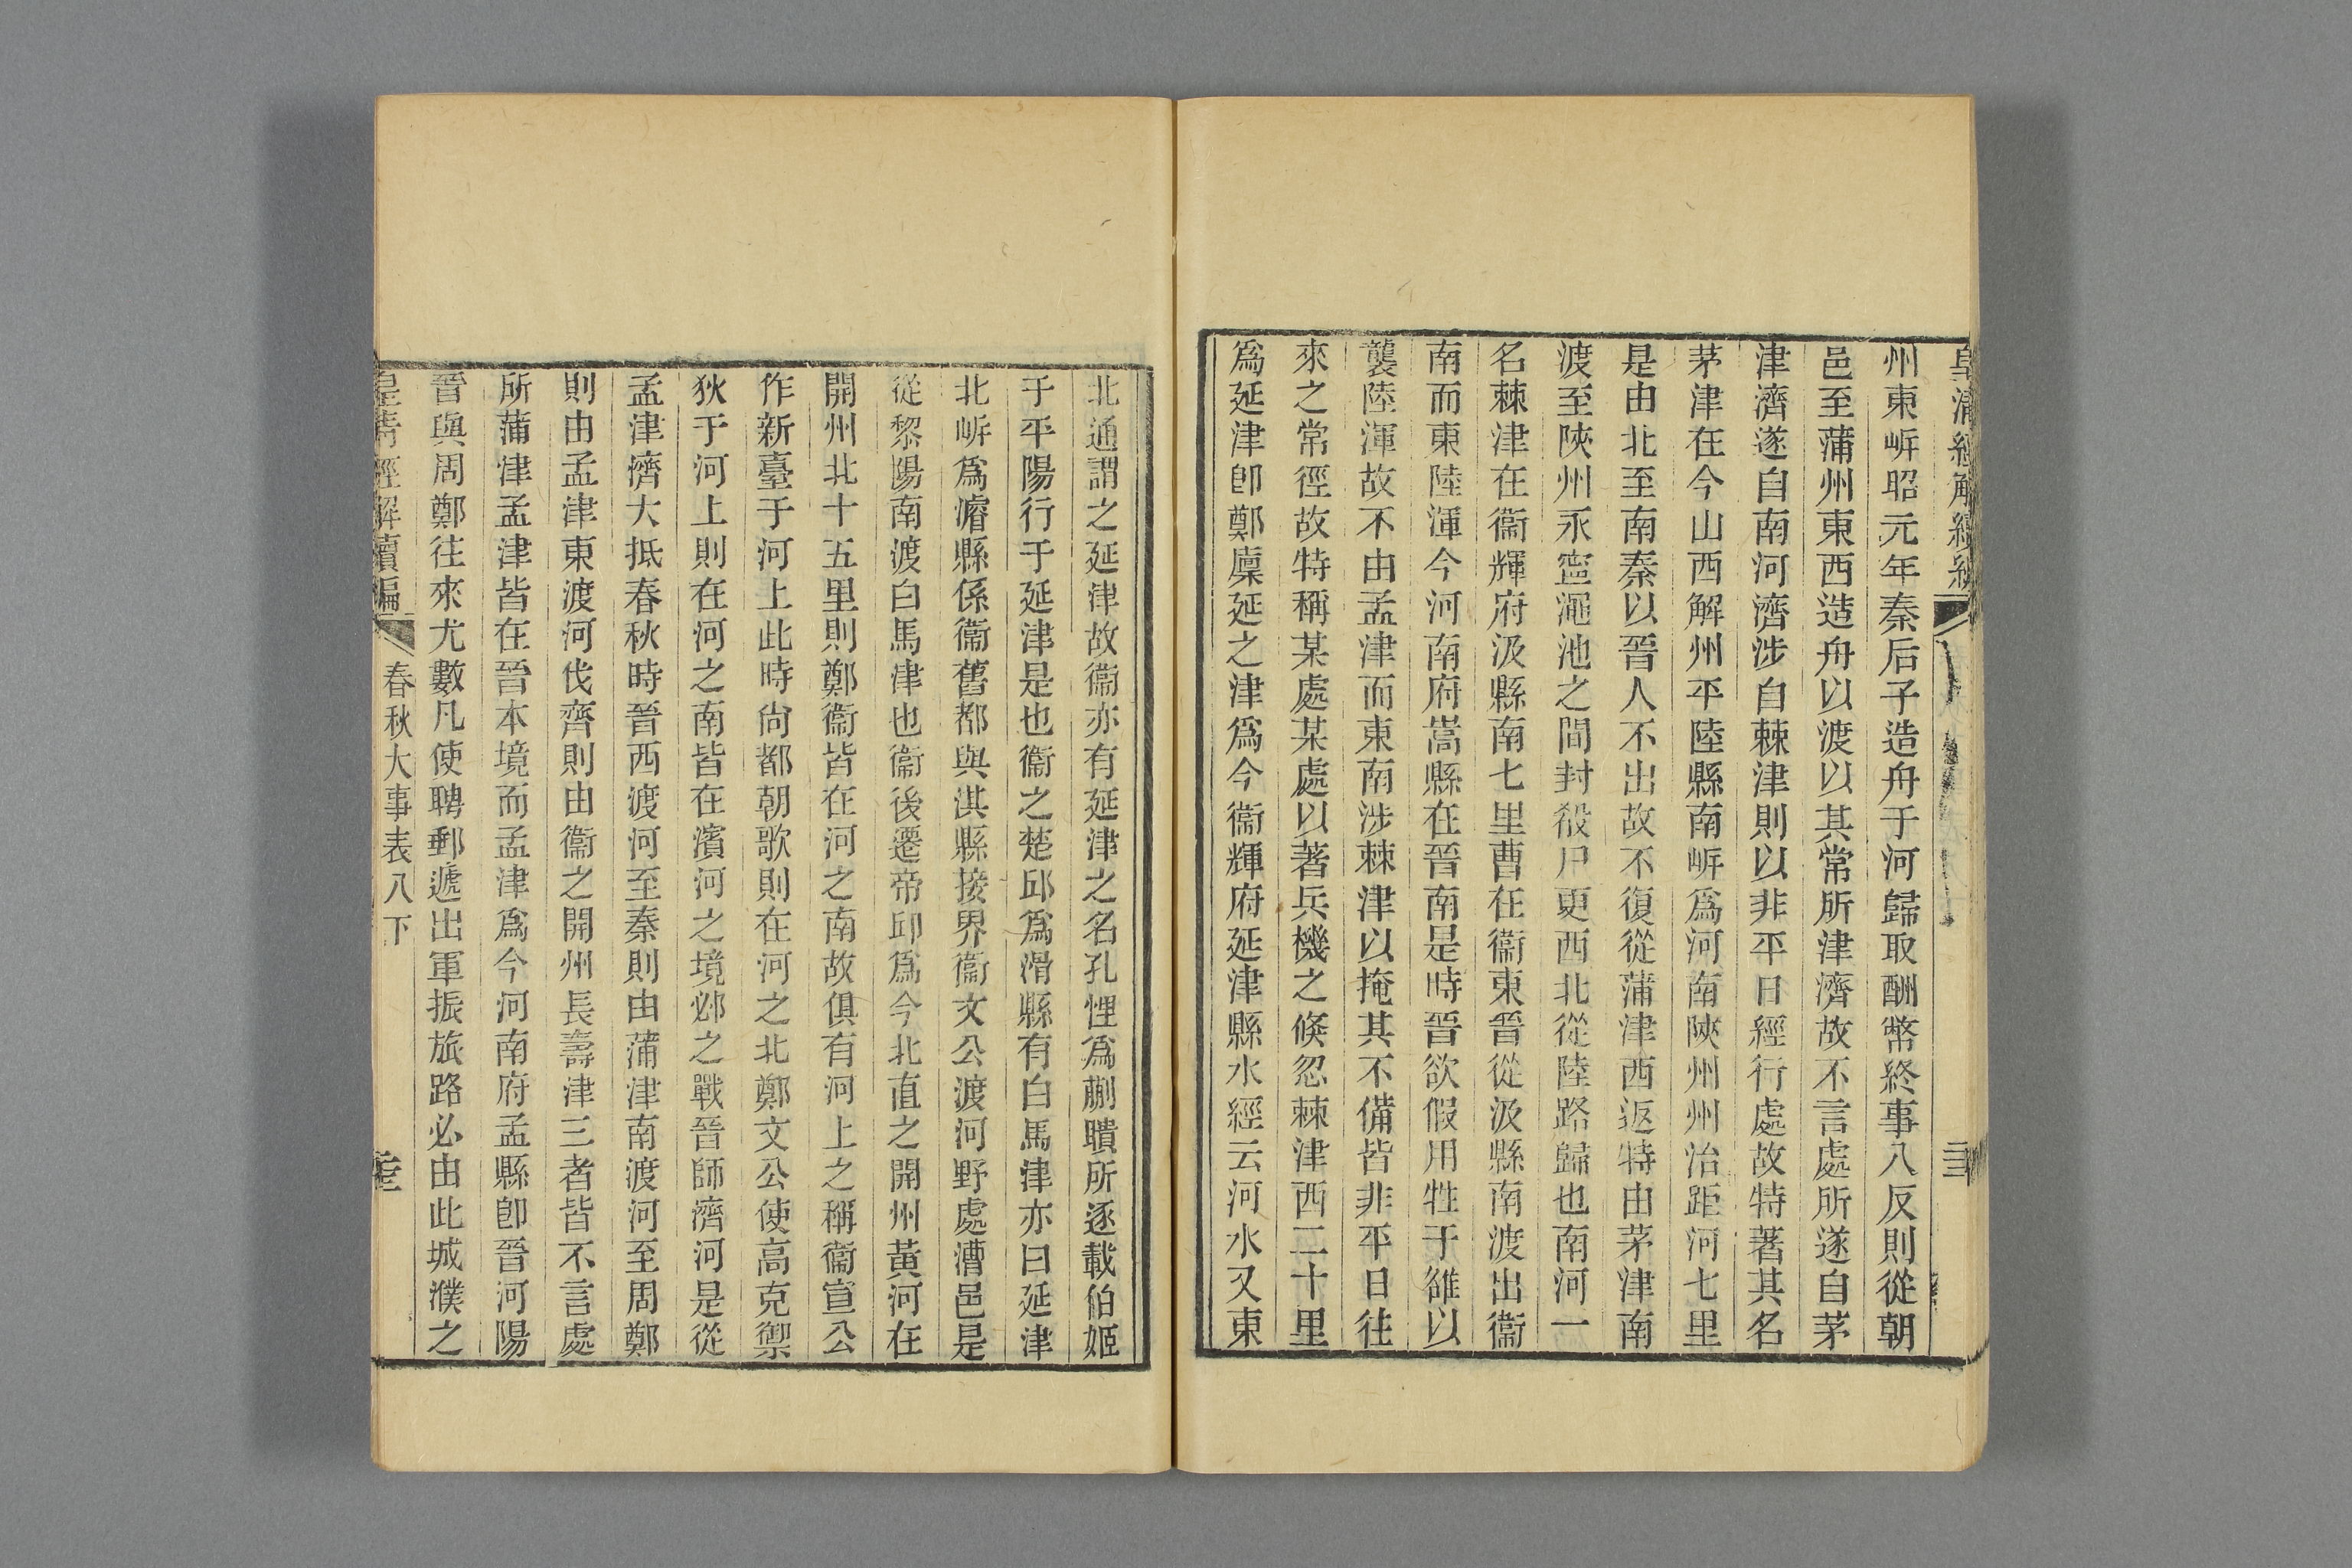 州東岍昭元年秦后子造舟于河歸取酬幣終事八反則從朝
邑至蒲州東西造舟以渡以其常所津濟故不言處所遂自茅
津濟遂自南河濟涉自棘津則以非平日經行處故特著其名
茅津在今山西解州平陸縣南岍爲河南陝州州治距河七里
是由北至南秦以晉人不出故不復從蒲津西返特由茅津南
渡至陝州永寧澠池之間封殽尸更西北從陸路歸也南河一
名棘津在衞輝府汲縣南七里曹在衞東晉從汲縣南渡出衞
南而東陸渾今河南府嵩縣在晉南是時晉欲假用牲于雒以
襲陸渾故不由孟津而東南涉棘津以掩其不備皆非平日往
來之常徑故特稱某處某處以著兵機之倏忽棘津西二十里
爲延津卽鄭廩延之津爲今衞輝府延津縣水經云河水又東
北通謂之延津故衞亦有延津之名孔悝爲蒯聵所逐載伯姬
于平陽行于延津是也衞之楚邱爲滑縣有白馬津亦曰延津
北岍爲濬縣係衞舊都與淇縣接界衞文公渡河野處漕邑是
從黎陽南渡白馬津也衞後遷帝邱爲今北直之開州黃河在
開州北十五里則鄭衞皆在河之南故俱有河上之稱衞宣公
作新臺于河上此時尙都朝歌則在河之北鄭文公使高克禦
狄于河上則在河之南皆在濱河之境邲之戰晉師濟河是從
孟津濟大抵春秋時晉西渡河至秦則由蒲津南渡河至周鄭
則由孟津東渡河伐齊則由衞之開州長壽津三者皆不言處
所蒲津孟津皆在晉本境而孟津爲今河南府孟縣卽晉河陽
晉與周鄭往來尤數凡使聘郵遞出軍振旅路必由此城濮之
皇淸經解續編
春秋大事表八下